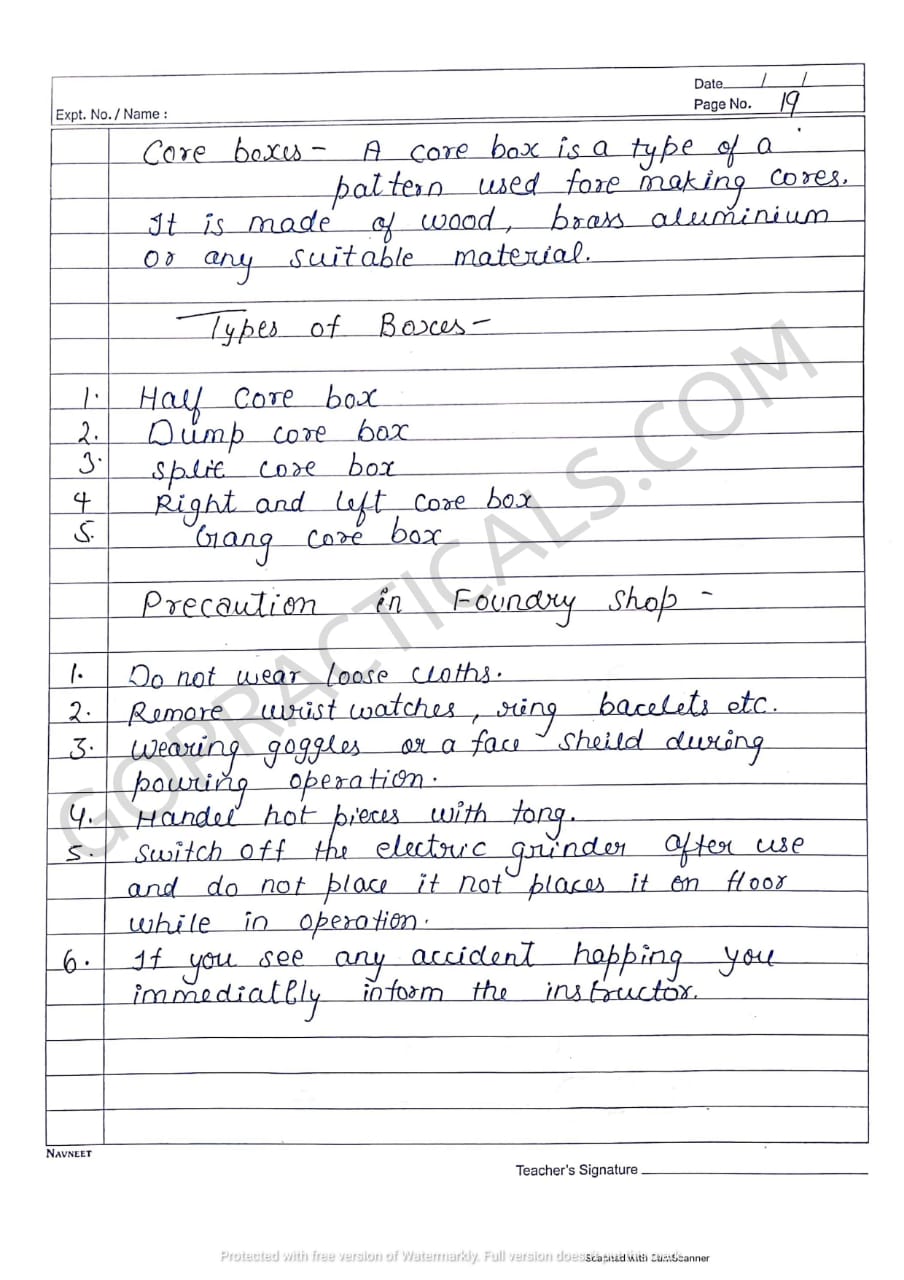 Date / /
Expt. No. / Name :
Page No. 19
Core boxes - A core box is a type of a
pattern used fore making cores.
It is made of wood, brass aluminium
or any suitable material.
Types of Boxes -
1. Half core box
2. Dump core box
3. split core box
4 Right and left core box
5. Gang core box
Precaution in Foundry shop -
1. Do not wear loose cloths.
2. Remore wrist watches, ring bacelets etc.
3. Wearing goggles or a face sheild during
pouring operation.
4. Handel hot pieces with tong.
5. Switch off the electric grinder after use
and do not place it not places it on floor
while in operation.
6. If you see any accident happing you
immediatlly inform the instructor.
GOPRACTICALS.COM
NAVNEET
Teacher's Signature
Protected with free version of Watermarkly. Full version does
Scanned with CamScanner